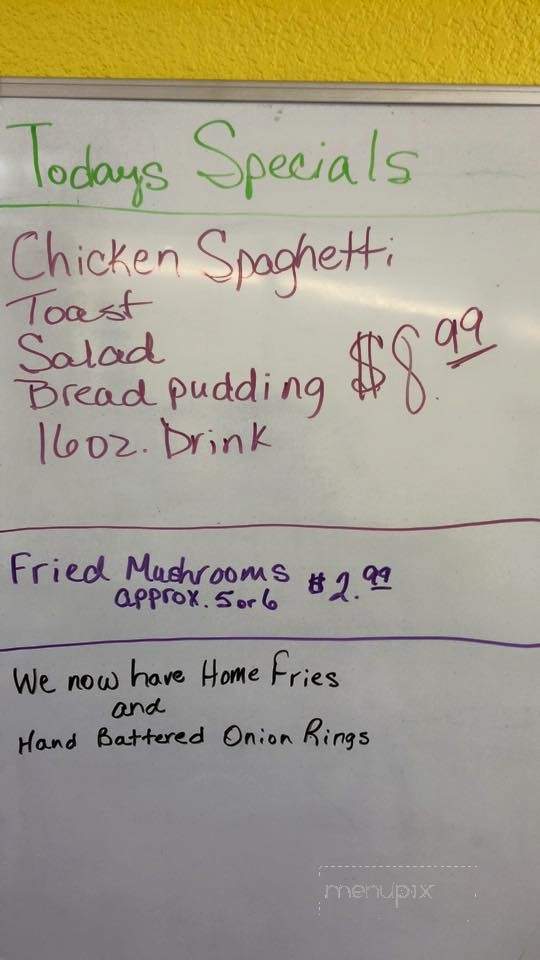 Todays Specials
Chicken Spaghetti
Toast
Salad
Bread pudding $8.99
16oz. Drink
Fried Mushrooms $2.99
approx. 5 or 6
We now have Home Fries
and
Hand Battered Onion Rings
menupix